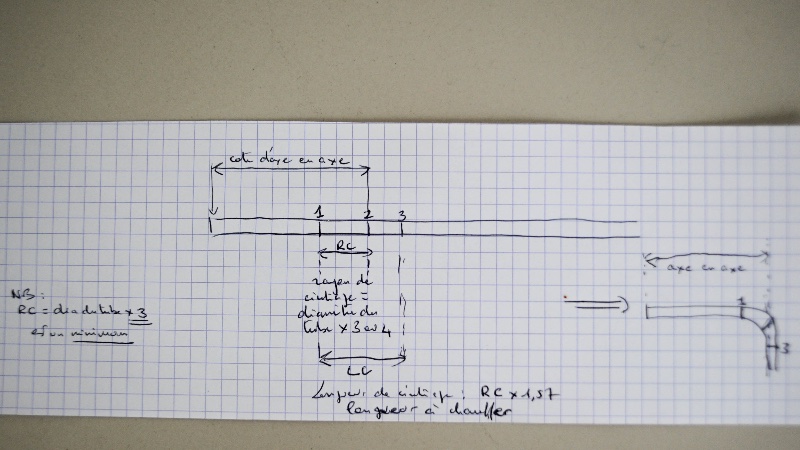 cote d'axe en axe
1 2 3
RC
rayon de
cintrage =
diamètre du
tube x 3 ou 4
LC
Longueur de cintrage : RC x 1,57
longueur à chauffer
NB :
RC = dia du tube x 3
est un minimum
axe en axe
1
3